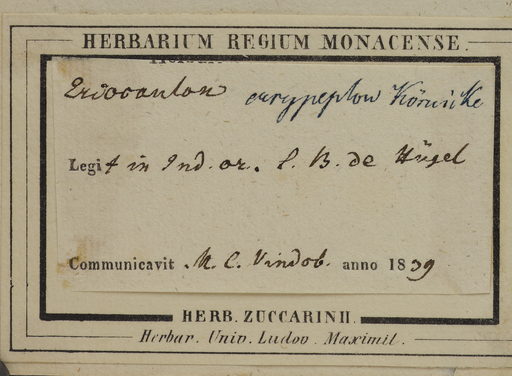 HERBARIUM REGIUM MONACENSE.
Eriocaulon eurypeplon Körnicke
Legit in Ind. or. C. B. de Hügel
Communicavit M. C. Vindob. anno 1839
HERB. ZUCCARINII.
Herbar. Univ. Ludov. Maximil.